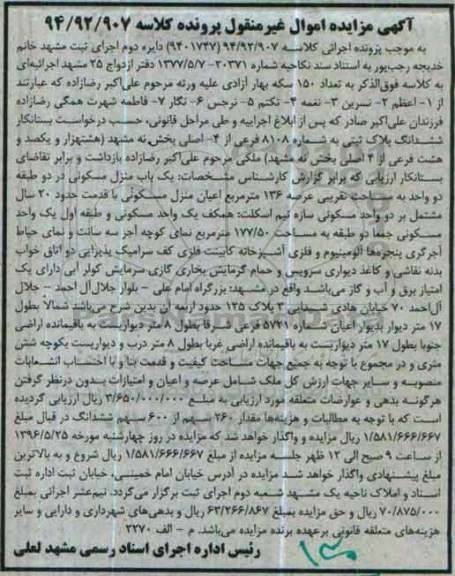 آگهی مزایده اموال غیرمنقول پرونده کلاسه ۹۴/۹۲/۹۰۷
به موجب پرونده اجرائی کلاسه ۹۴/۹۲/۹۰۷ (۹۴۰۱۷۴۷) دایره دوم اجرای ثبت مشهد خانم
خدیجه رجب‌پور به استناد سند نکاحیه شماره ۲۰۳۷۱- ۱۳۷۷/۵/۷ دفتر ازدواج ۲۵ مشهد اجرائیه‌ای
به کلاسه فوق‌الذکر به تعداد ۱۵۰ سکه بهار آزادی علیه ورثه مرحوم علی‌اکبر رضازاده که عبارتند
از ۱- اعظم ۲- نسرین ۳- نغمه ۴- تکتم ۵- نرجس ۶- نگار ۷- فاطمه شهرت همگی رضازاده
فرزندان علی‌اکبر صادر که پس از ابلاغ اجراییه و طی مراحل قانونی، حسب درخواست بستانکار
ششدانگ پلاک ثبتی به شماره ۸۱۰۸ فرعی از ۴- اصلی بخش نه مشهد (هشتهزار و یکصد و
هشت فرعی از ۴ اصلی بخش نه مشهد) ملکی مرحوم علی‌اکبر رضازاده بازداشت و برابر تقاضای
بستانکار ارزیابی که برابر گزارش کارشناس مشخصات: یک باب منزل مسکونی در دو طبقه
دو واحد به مساحت تقریبی عرصه ۱۳۶ مترمربع اعیان منزل مسکونی با قدمت حدود ۲۰ سال
مشتمل بر دو واحد مسکونی سازه نیم اسکلت: همکف یک واحد مسکونی و طبقه اول یک واحد
مسکونی جمعا دو طبقه به مساحت ۱۷۷/۵۰ مترمربع نمای کوچه آجر سه سانت و نمای حیاط
آجرگری پنجره‌ها آلومینیوم و فلزی آشپزخانه کابینت فلزی کف سرامیک پذیرایی دو اتاق خواب
بدنه نقاشی و کاغذ دیواری سرویس و حمام گرمایش بخاری گازی سرمایش کولر آبی دارای یک
امتیاز برق و آب و گاز می‌باشد واقع در مشهد: بزرگراه امام علی – بلوار جلال آل احمد – جلال
آل‌احمد ۷۰ خیابان هادی ۲ پلاک ۱۲۵ حدود اربعه آن بدین شرح می‌باشد شمالاً بطول
۱۷ متر دیوار بدیوار اعیان شماره ۵۷۲۱ فرعی شرقا بطول ۸ متر دیواریست به باقیمانده اراضی
جنوبا بطول ۱۷ متر دیواریست به باقیمانده اراضی غربا بطول ۸ متر درب و دیواریست بکوچه شش
متری و در مجموع با توجه به جمیع جهات مساحت کیفیت و قدمت بنا و با احتساب انشعابات
منصوبه و سایر جهات ارزش کل ملک شامل عرصه و اعیان و امتیازات بدون درنظر گرفتن
هرگونه بدهی و عوارضات متعلقه مورد ارزیابی به مبلغ ۳/۶۵۰/۰۰۰/۰۰۰ ریال ارزیابی گردیده
است که با توجه به مطالبات و هزینه‌ها مقدار ۲۶۰ سهم از ۶۰۰ سهم ششدانگ در قبال مبلغ
۱/۵۸۱/۶۶۶/۶۶۷ ریال مزایده و واگذار خواهد شد که مزایده در روز چهارشنبه مورخه ۱۳۹۶/۵/۲۵
از ساعت ۹ صبح الی ۱۲ ظهر جلسه مزایده از مبلغ ۱/۵۸۱/۶۶۶/۶۶۷ ریال شروع و به بالاترین
مبلغ پیشنهادی واگذار خواهد شد مزایده در آدرس خیابان امام خمینی، خیابان ثبت اداره ثبت
اسناد و املاک ناحیه یک مشهد شعبه دوم اجرای ثبت برگزار می‌گردد. نیم‌عشر اجرائی بمبلغ
۷۰/۸۷۵/۰۰۰ ریال و حق مزایده بمبلغ ۶۳/۲۶۶/۸۶۷ ریال و بدهی‌های شهرداری و دارایی و سایر
هزینه‌های متعلقه قانونی برعهده برنده مزایده می‌باشد. م – الف ۲۲۷۰
رئیس اداره اجرای اسناد رسمی مشهد لعلی